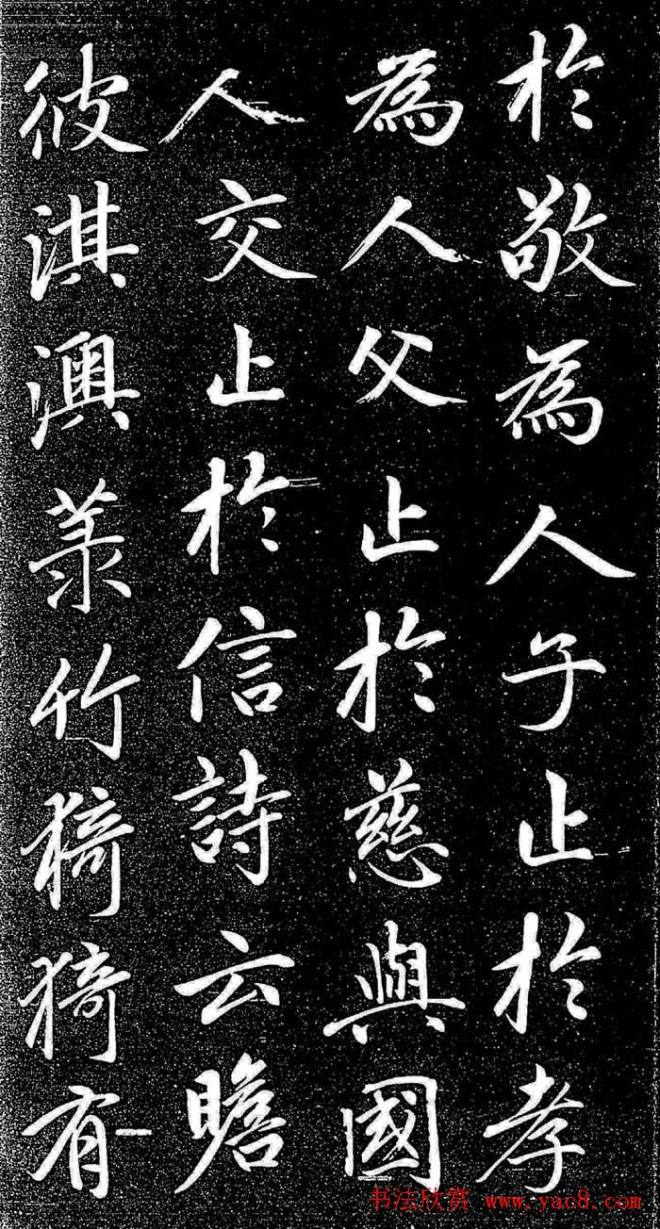 於敬為人子止於孝
為人父止於慈與國
人交止於信詩云瞻
彼淇澳菉竹猗猗有
书法欣赏 www.yac8.com